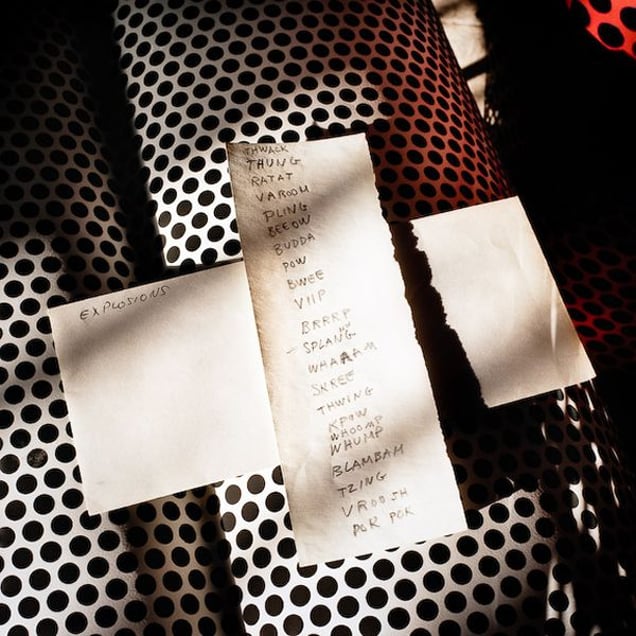 EXPLOSIONS
THWACK
THUNG
RATAT
VAROOM
PLING
BEEOW
BUDDA
POW
BWEE
VIIP
BRRRP
SPLANG
WHAAAM
SKREE
THWING
KPOW
WHOOMP
WHUMP
BLAMBAM
TZING
VROOSH
POK POK